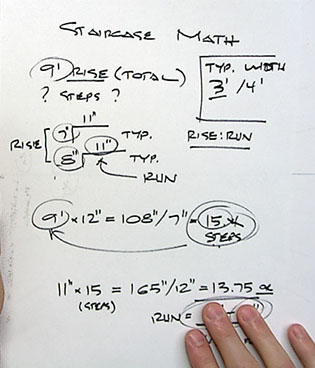 STAIRCASE MATH
9' RISE (TOTAL)
? STEPS ?
TYP. WIDTH
3' / 4'
RISE : RUN
11"
RISE 7" TYP.
11"
8" TYP.
RUN
9' × 12" = 108" / 7" = 15
STEPS
11" × 15 = 165" / 12" = 13.75
(STEPS)
RUN =